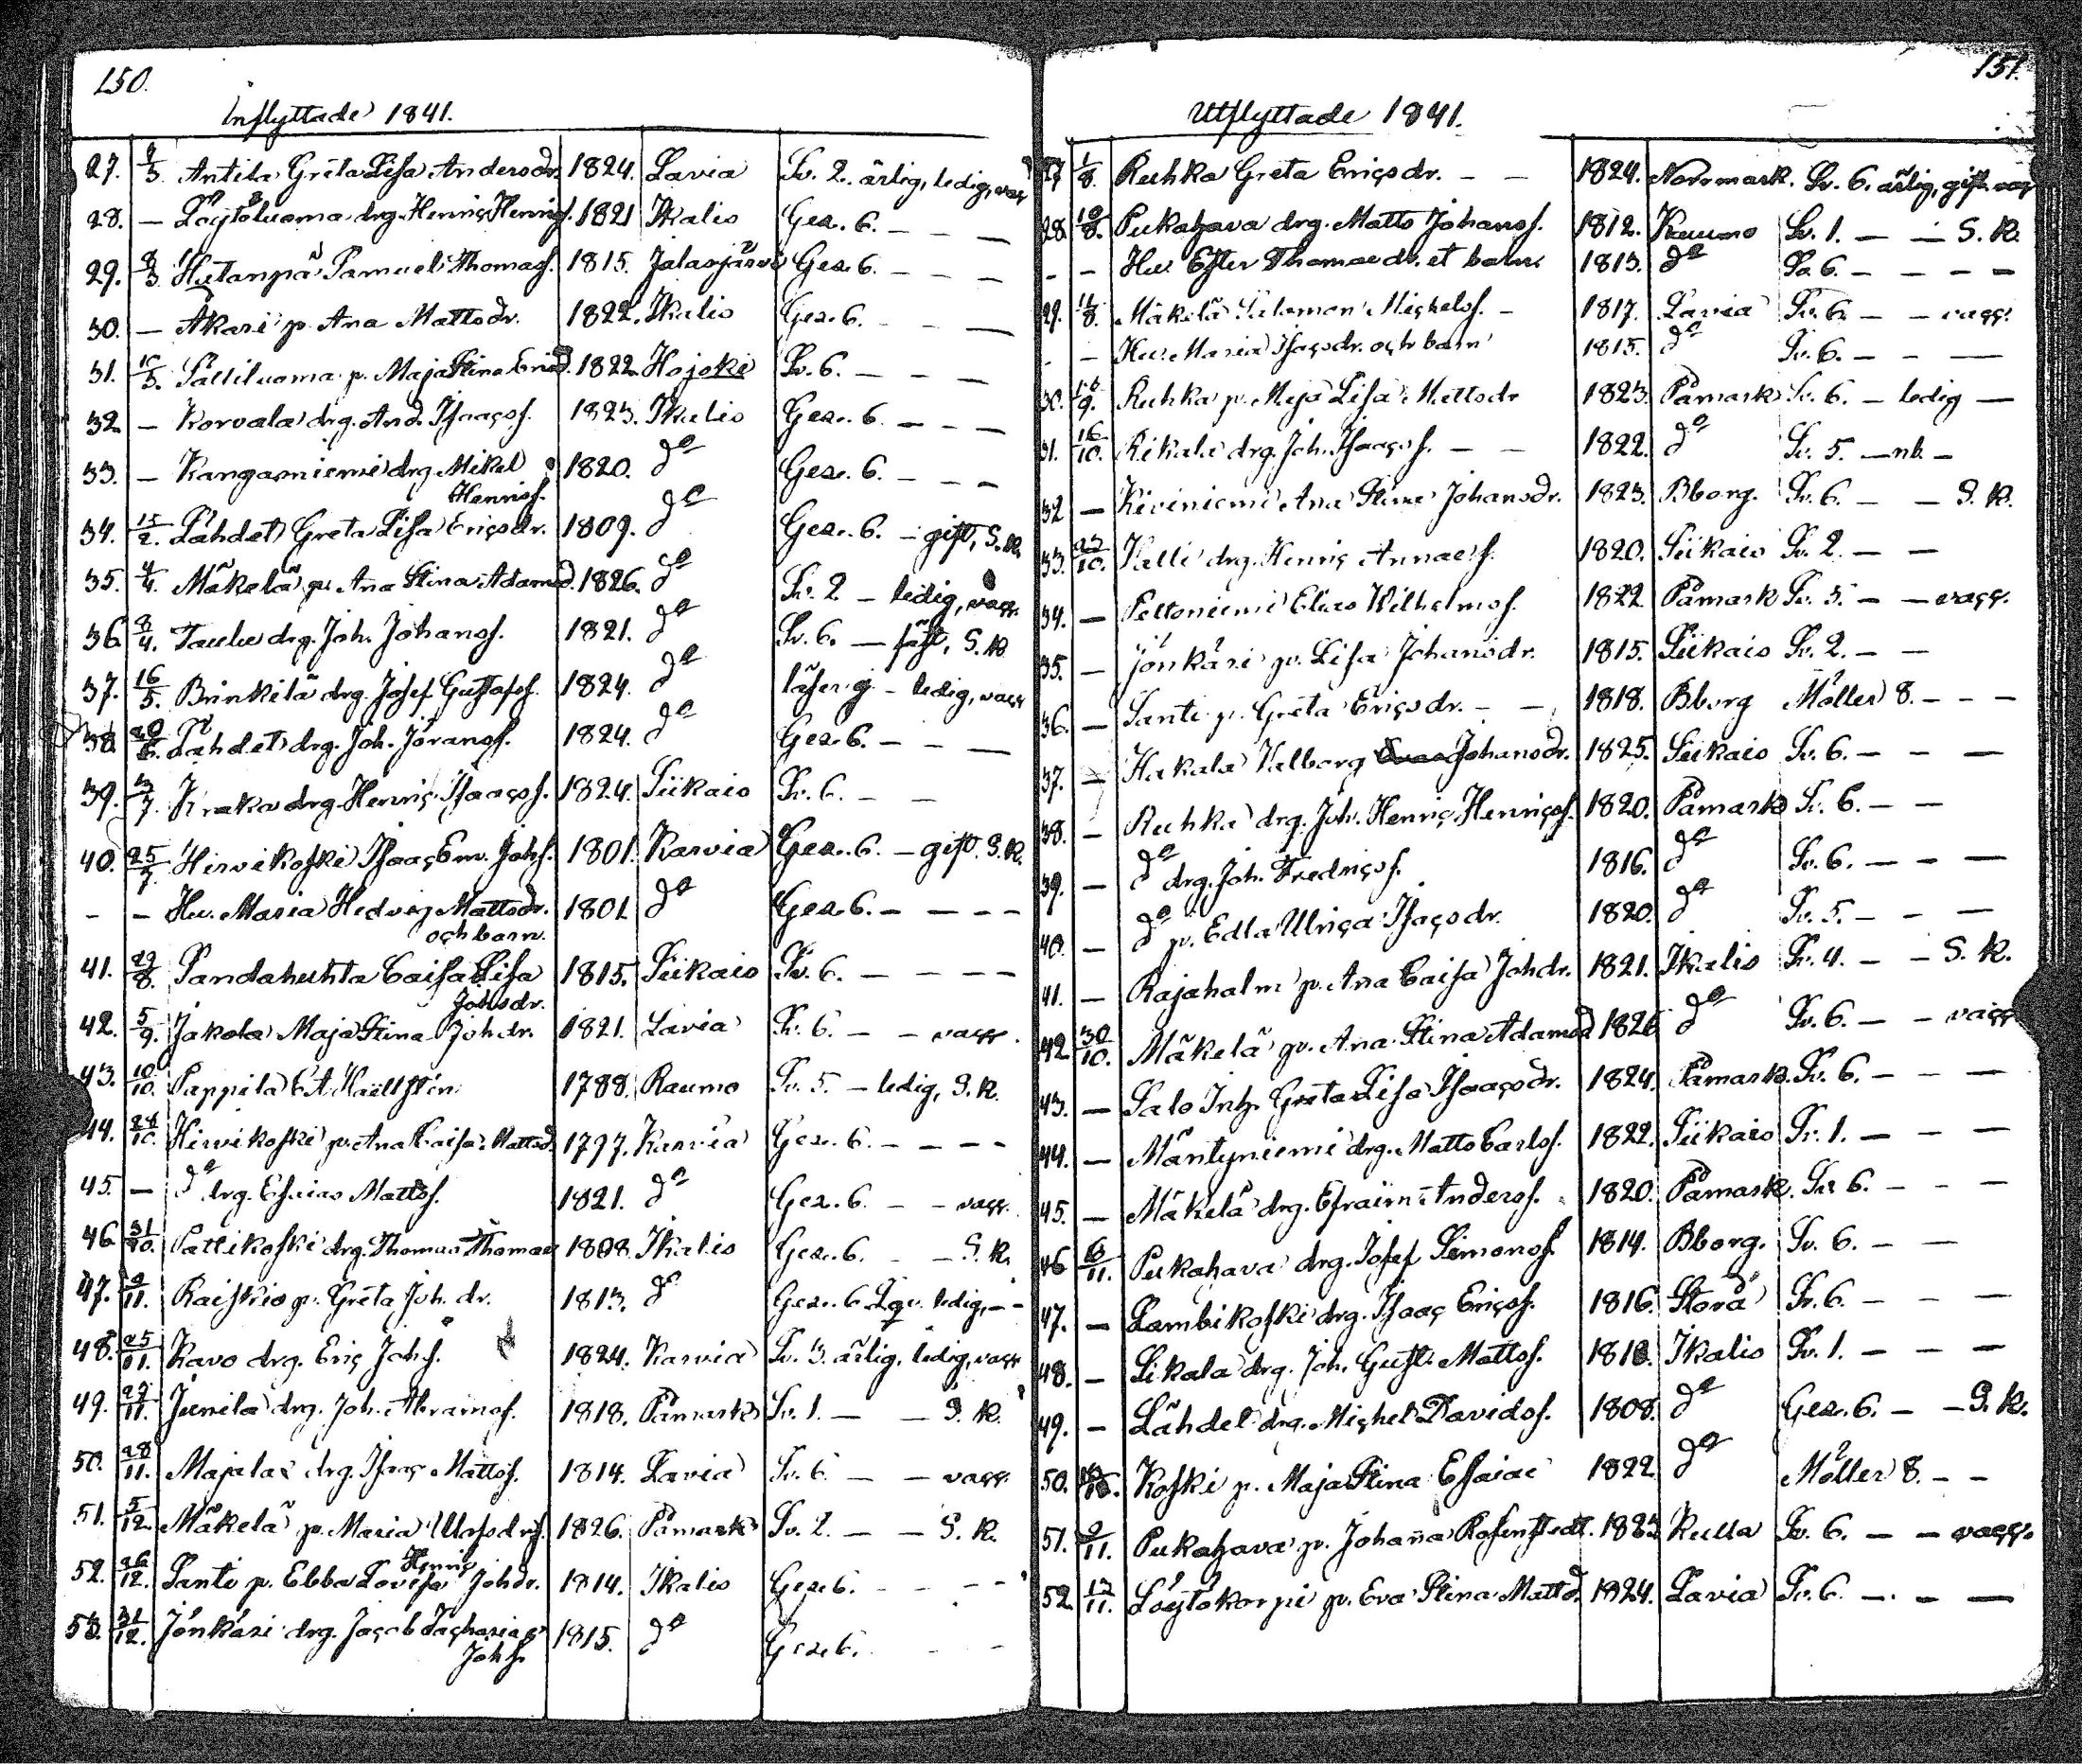 150.
Inflyttade 1841.
27. 2/3 Antila Greta Lisa Andersdr. 1824. Lavia Sv. 2. ärlig, ledig, vacc
28. — Löytöluoma drg. Henriç Henriçs. 1821 Ikalis Gez. 6. — — —
29. 8/3 Hietanpä Samuel Thomass. 1815. Jalasjärvi Gez. 6. — — —
30. — Akari p. Ana Mattsdr. 1822. Ikalis Gez. 6. — — —
31. 15/3. Sälliluoma p. Maja Stina Ericsd. 1822. Hojoki Sv. 6. — — —
32 — Korvala drg. And. Isaaçss. 1823. Ikalis Gez. 6. — — —
33. — Kangasniemi drg. Mikel 1820. do Gez. 6. — — —
Henriss.
34. 15/2. Lähdet Greta Lisa Eriçsdr. 1809. do Gez. 6. — gift, S.K.
35. 4/4. Mäkelä p. Ana Stina Adamsd. 1826. do Sv. 2 — ledig, vacc.
36. 8/4. Taulu drg. Joh. Johanss. 1821. do Sv. 6. — fäst, S.K
37. 16/5. Brinkilä drg. Josef Gustafss. 1824. do läser g. — ledig, vacc
38. 20/6. Lähdet drg. Joh. Joranss. 1824. do Gez. 6. — — —
39. 3/7. Kraka drg. Henriç Isaaçss. 1824. Siikais Sv. 6. — —
40. 25/7. Hirvikoski Isaaç Em. Johs. 1801. Karvia Gez. 6. — gift. S.K.
- — Hu. Maria Hedvig Mattsdr. 1801 do Gez. 6. — — — —
och barn.
41. 29/8. Sandahuhta Caisa Lisa 1815. Siikais Sv. 6. — — — —
Johsdr.
42. 5/9. Jakola Maja Stina Johdr. 1821. Lavia Sv. 6. — — vacc.
43. 10/10. Pappila E.A. Hällsten 1788. Raumo Sv. 5. — ledig, S.K.
44. 24/10. Hirvikoski p. Ana Caisa Mattsd. 1797. Karvia Gez. 6. — — — —
45. — do drg. Esaias Mattss. 1821. do Gez. 6 — — vacc.
46 31/10. Pattikoski drg. Thomas Thomas 1808. Ikalis Gez. 6. — S.K.
47. 9/11. Raiskio p. Greta Joh. dr. 1813. do Gez. 6 ledig, — -
48. 25/11. Kavo drg. Eriç Johs. 1824. Karvia Sv. 3. ärlig, ledig, vacc
49. 27/11. Junila drg. Joh. Abramss. 1818. Påmark Sv. 1. — — S.K.
50. 28/11. Majala drg. Isaaç Mattss. 1814. Lavia Sv. 6 — — vacc.
51. 5/12. Mäkelä p. Maria 1826. Påmark Sv. 2. — — S.K.
Henriç
52. 26/12. Santi p. Ebba Lovisa Johdr. 1814. Ikalis Gez 6. — — —
53. 31/12. Jönkäri drg. Jaçob Zaçharias 1815. do Gez 6. — —
Johs.
151.
Utflyttade 1841.
27 1/8. Ruhka Greta Eriçsdr. — — 1824. Norrmark. Sv. 6. ärlig, gift. vacc
28. 10/8. Pukahava drg. Matts Johanss. 1812. Raumo Sv. 1. — — S.K.
- - Hu. Ester Thomasdr. et barn 1813. do Sv 6. — — — —
29. 11/8. Mäkelä Salomon Miçhelss. — 1817. Lavia Sv. 6. — — vacc.
- — Hu. Maria Isaçsdr. och barn 1815. do Sv. 6. — — —
30. 18/9. Ruhka p. Maja Lisa Mattsdr 1823. Påmark Sv. 6. — ledig —
31. 16/10. Rikala drg. Joh. Isaaçss. — — 1822. do Sv. 5. — nb. —
32 — Kiviniemi Ana Stina Johansdr. 1823. Bborg. Sv. 6. — — S.K.
33. 23/10. Kalli drg. Henriç Annaess. 1820. Siikais Sv. 2. — —
34. — Peltoniemi Elias Wilhelmss. 1822. Påmark Sv. 3. — — vacc.
35. — Jönkäri p. Lisa Johansdr. 1815. Siikais Sv. 2. — —
36. — Santi p. Greta Eriçsdr. — — 1818. Bborg Möller 8. — — —
37. — Hakala Valborg Johansdr. 1825. Siikais Sv. 6. — — —
38. — Ruhka drg. Joh. Henriç Henriçss. 1820. Påmark Sv. 6. — —
39. — do drg. Joh. Fredriçss. 1816. do Sv. 6. — — —
40. — do p. Edla Ulriça Isaçsdr. 1820. do Sv. 5. — — —
41. — Rajahalm p. Ana Caisa Johdr. 1821. Ikalis Sv. 4. — — S.K.
42 30/10. Mäkelä p. Ana Stina Adamsd. 1826 do Sv. 6. — — vacc
43. — Salo Inh. Greta Lisa Isaaçsdr. 1824. Påmark. Sv. 6. — — —
44. — Mäntyniemi drg. Matts Carlss. 1822. Siikais Sv. 1. — — —
45. — Mäkelä drg. Efraim Anderss. 1820. Påmark. Sv 6. — — —
46 6/11. Pukahava drg. Josef Simonss. 1814. Bborg. Sv. 6. — —
47. — Lambikoski drg. Isaaç Eriçss. 1816. Storå Sv. 6. — — —
48. — Sikala drg. Joh. Gust. Mattss. 1818. Ikalis Sv. 1. — — —
49. — Lähdet drg. Miçhel Davidss. 1808. do Gez. 6. — — S.K.
50. Koski p. Maja Stina Esaiae 1822. do Möller 8. — —
51. 9/11. Pukahava p. Johaña Rosenstedt. Kulla Sv. 6. — — vacc.
52. 13/11. Löytökorpi p. Eva Stina Mattsd. 1824. Lavia Sv. 6. — — —